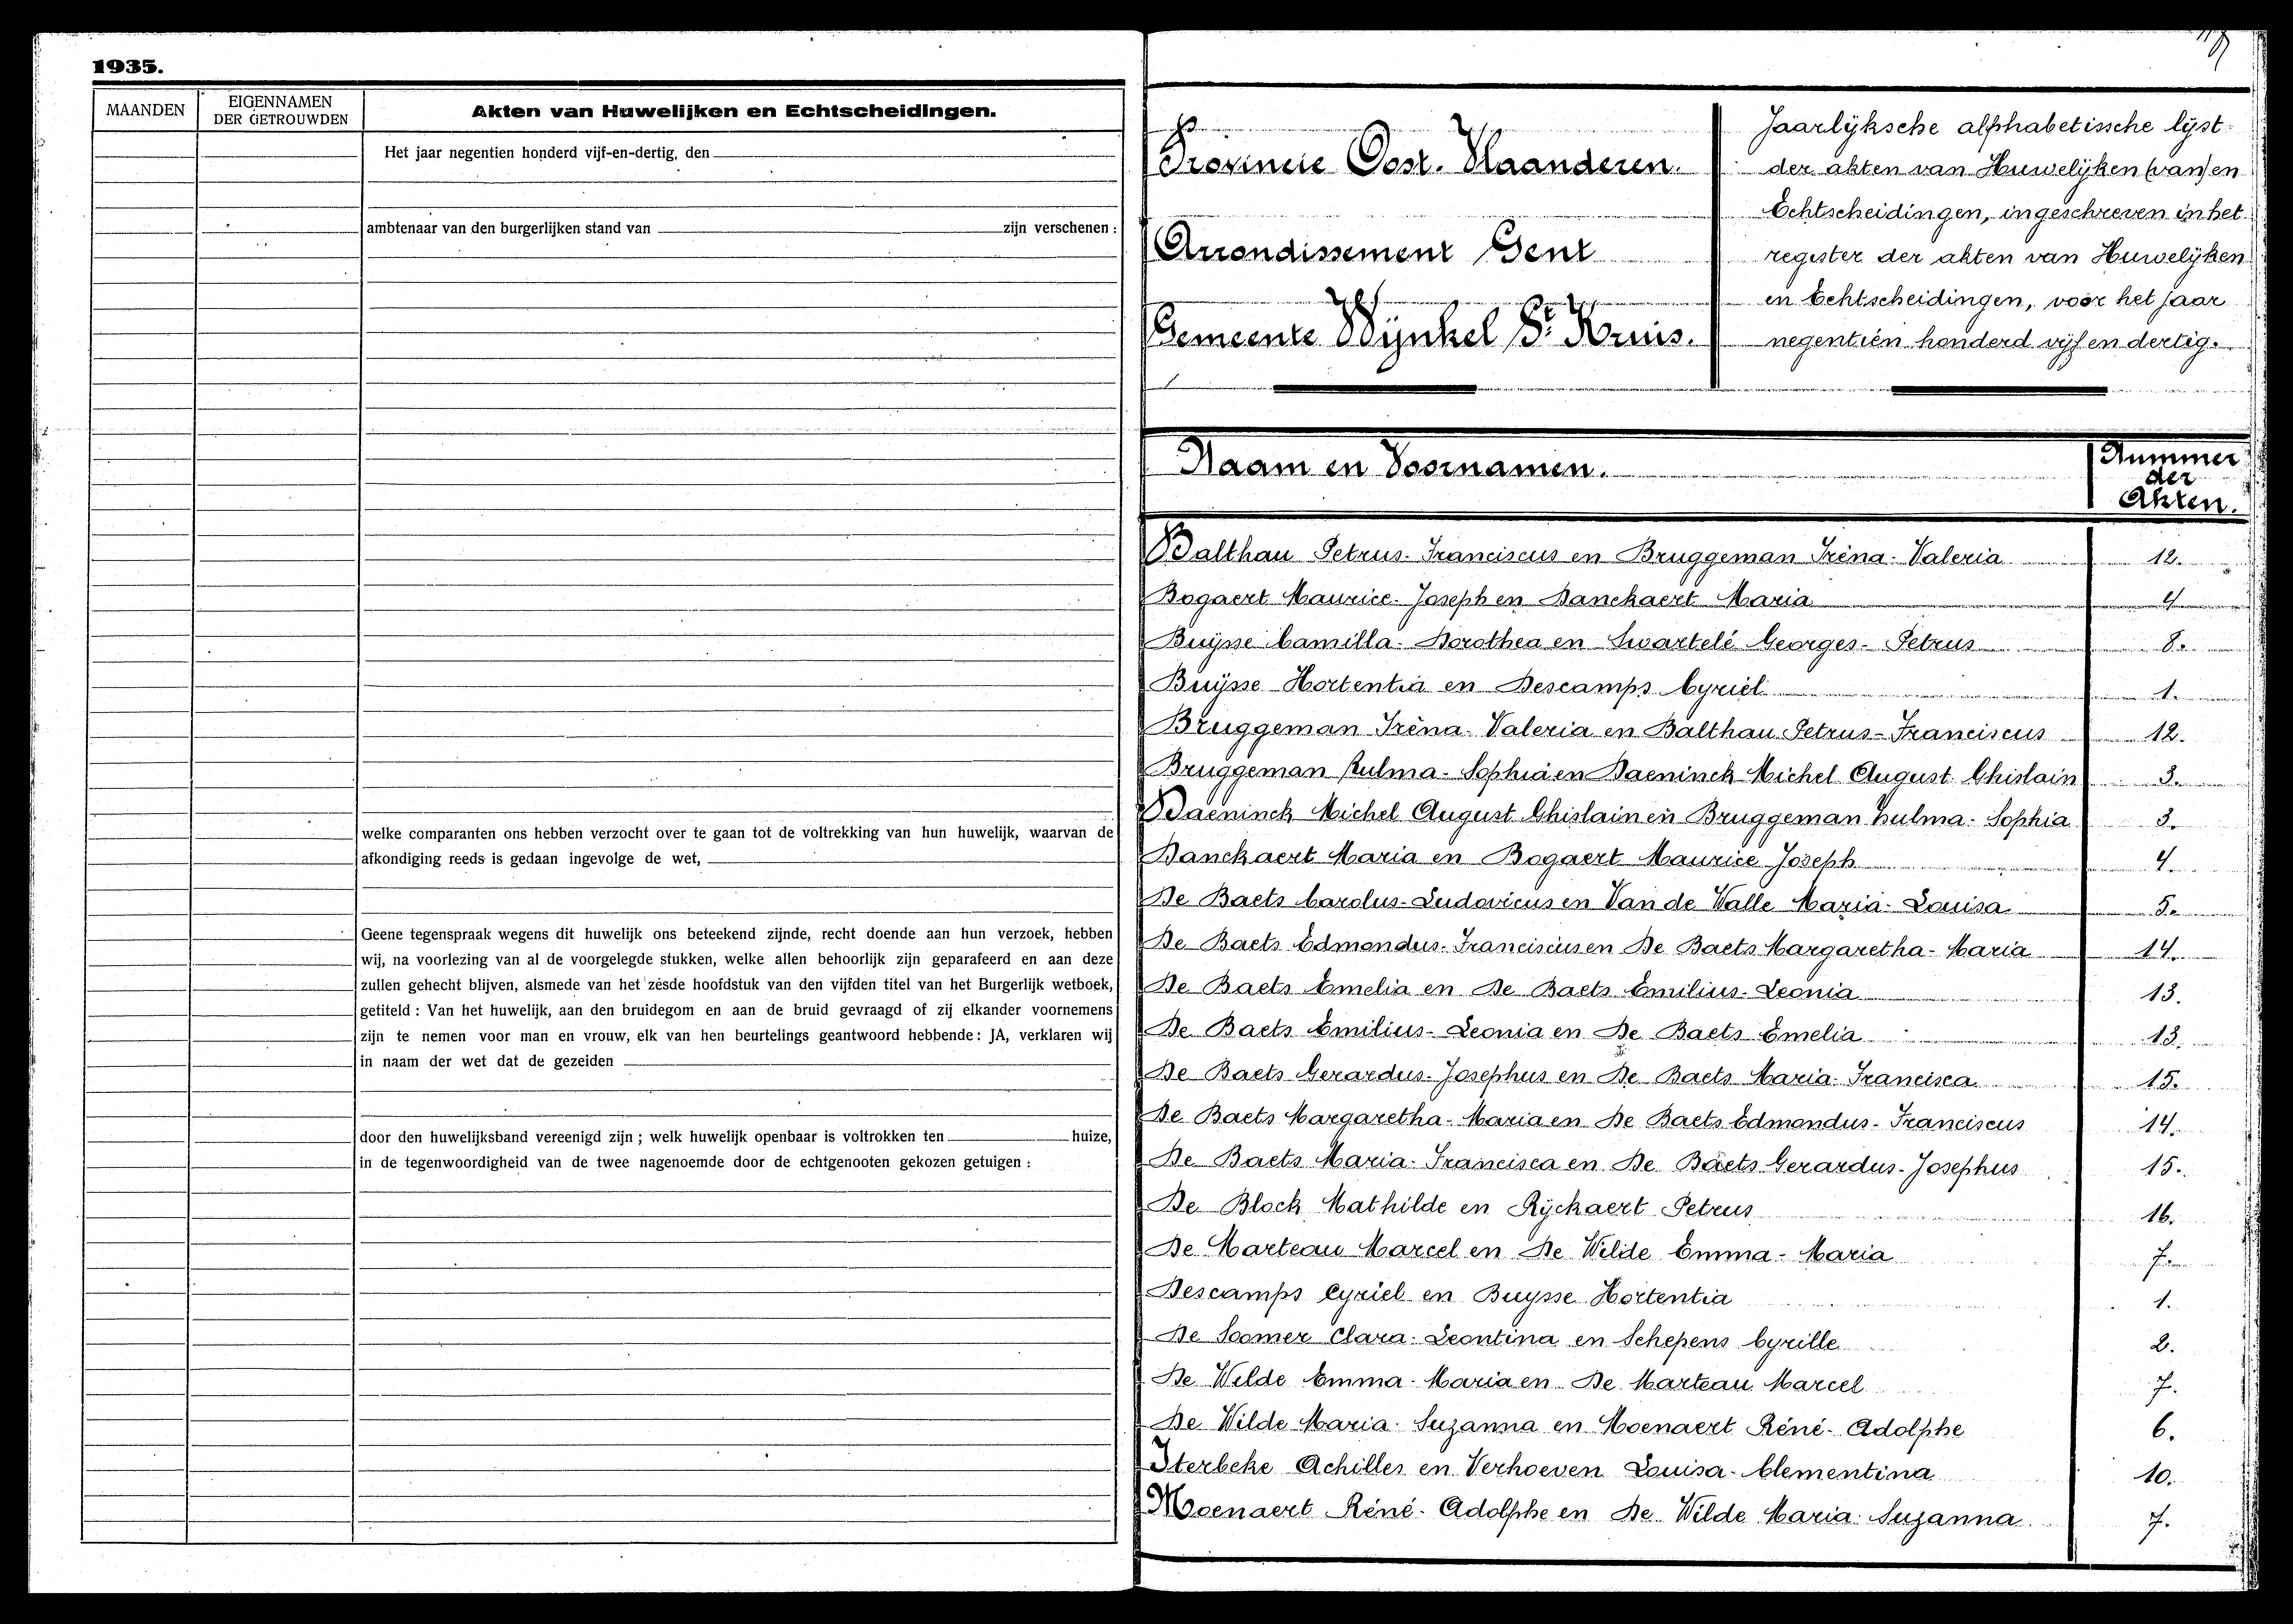 1935.
MAANDEN
EIGENNAMEN
DER GETROUWDEN
Akten van Huwelijken en Echtscheidingen.
Het jaar negentien honderd vijf-en-dertig, den
ambtenaar van den burgerlijken stand van zijn verschenen:
welke comparanten ons hebben verzocht over te gaan tot de voltrekking van hun huwelijk, waarvan de
afkondiging reeds is gedaan ingevolge de wet,
Geene tegenspraak wegens dit huwelijk ons beteekend zijnde, recht doende aan hun verzoek, hebben
wij, na voorlezing van al de voorgelegde stukken, welke allen behoorlijk zijn geparafeerd en aan deze
zullen gehecht blijven, alsmede van het zesde hoofdstuk van den vijfden titel van het Burgerlijk wetboek,
getiteld: Van het huwelijk, aan den bruidegom en aan de bruid gevraagd of zij elkander voornemens
zijn te nemen voor man en vrouw, elk van hen beurtelings geantwoord hebbende: JA, verklaren wij
in naam der wet dat de gezeiden
door den huwelijksband vereenigd zijn; welk huwelijk openbaar is voltrokken ten huize,
in de tegenwoordigheid van de twee nagenoemde door de echtgenooten gekozen getuigen:
Provincie Oost-Vlaanderen.
Arrondissement Gent
Gemeente Wijnkel St Kruis.
Jaarlijksche alphabetische lijst
der akten van Huwelijken (van) en
Echtscheidingen, ingeschreven in het
register der akten van Huwelijken
en Echtscheidingen, voor het jaar
negentien honderd vijf en dertig.
Naam en Voornamen.
Nummer
der
Akten.
Balthau Petrus-Franciscus en Bruggeman Iréna-Valeria 12.
Bogaert Maurice-Joseph en Danckaert Maria 4
Buijsse Camilla-Dorothea en Swartelé Georges-Petrus 8.
Buijsse Hortentia en Descamps Cyriel 1.
Bruggeman Iréna-Valeria en Balthau Petrus-Franciscus 12.
Bruggeman Zulma-Sophia en Daeninck Michel August Ghislain 3.
Daeninck Michel August Ghislain en Bruggeman Zulma-Sophia 3.
Danckaert Maria en Bogaert Maurice Joseph 4.
De Baets Carolus-Ludovicus en Van de Walle Maria-Louisa 5.
De Baets Edmondus-Franciscus en De Baets Margaretha-Maria 14.
De Baets Emelia en De Baets Emilius-Leonia 13.
De Baets Emilius-Leonia en De Baets Emelia 13.
De Baets Gerardus-Josephus en De Baets Maria-Francisca 15.
De Baets Margaretha-Maria en De Baets Edmondus-Franciscus 14.
De Baets Maria-Francisca en De Baets Gerardus-Josephus 15.
De Block Mathilde en Ryckaert Petrus 16.
De Marteau Marcel en De Wilde Emma-Maria 7.
Descamps Cyriel en Buysse Hortentia 1.
De Soomer Clara-Leontina en Schepens Cyrille 2.
De Wilde Emma-Maria en De Marteau Marcel 7.
De Wilde Maria-Suzanna en Moenaert Réné-Adolphe 6.
Iterbeke Achilles en Verhoeven Louisa-Clementina 10.
Moenaert Réné-Adolphe en De Wilde Maria-Suzanna 7.